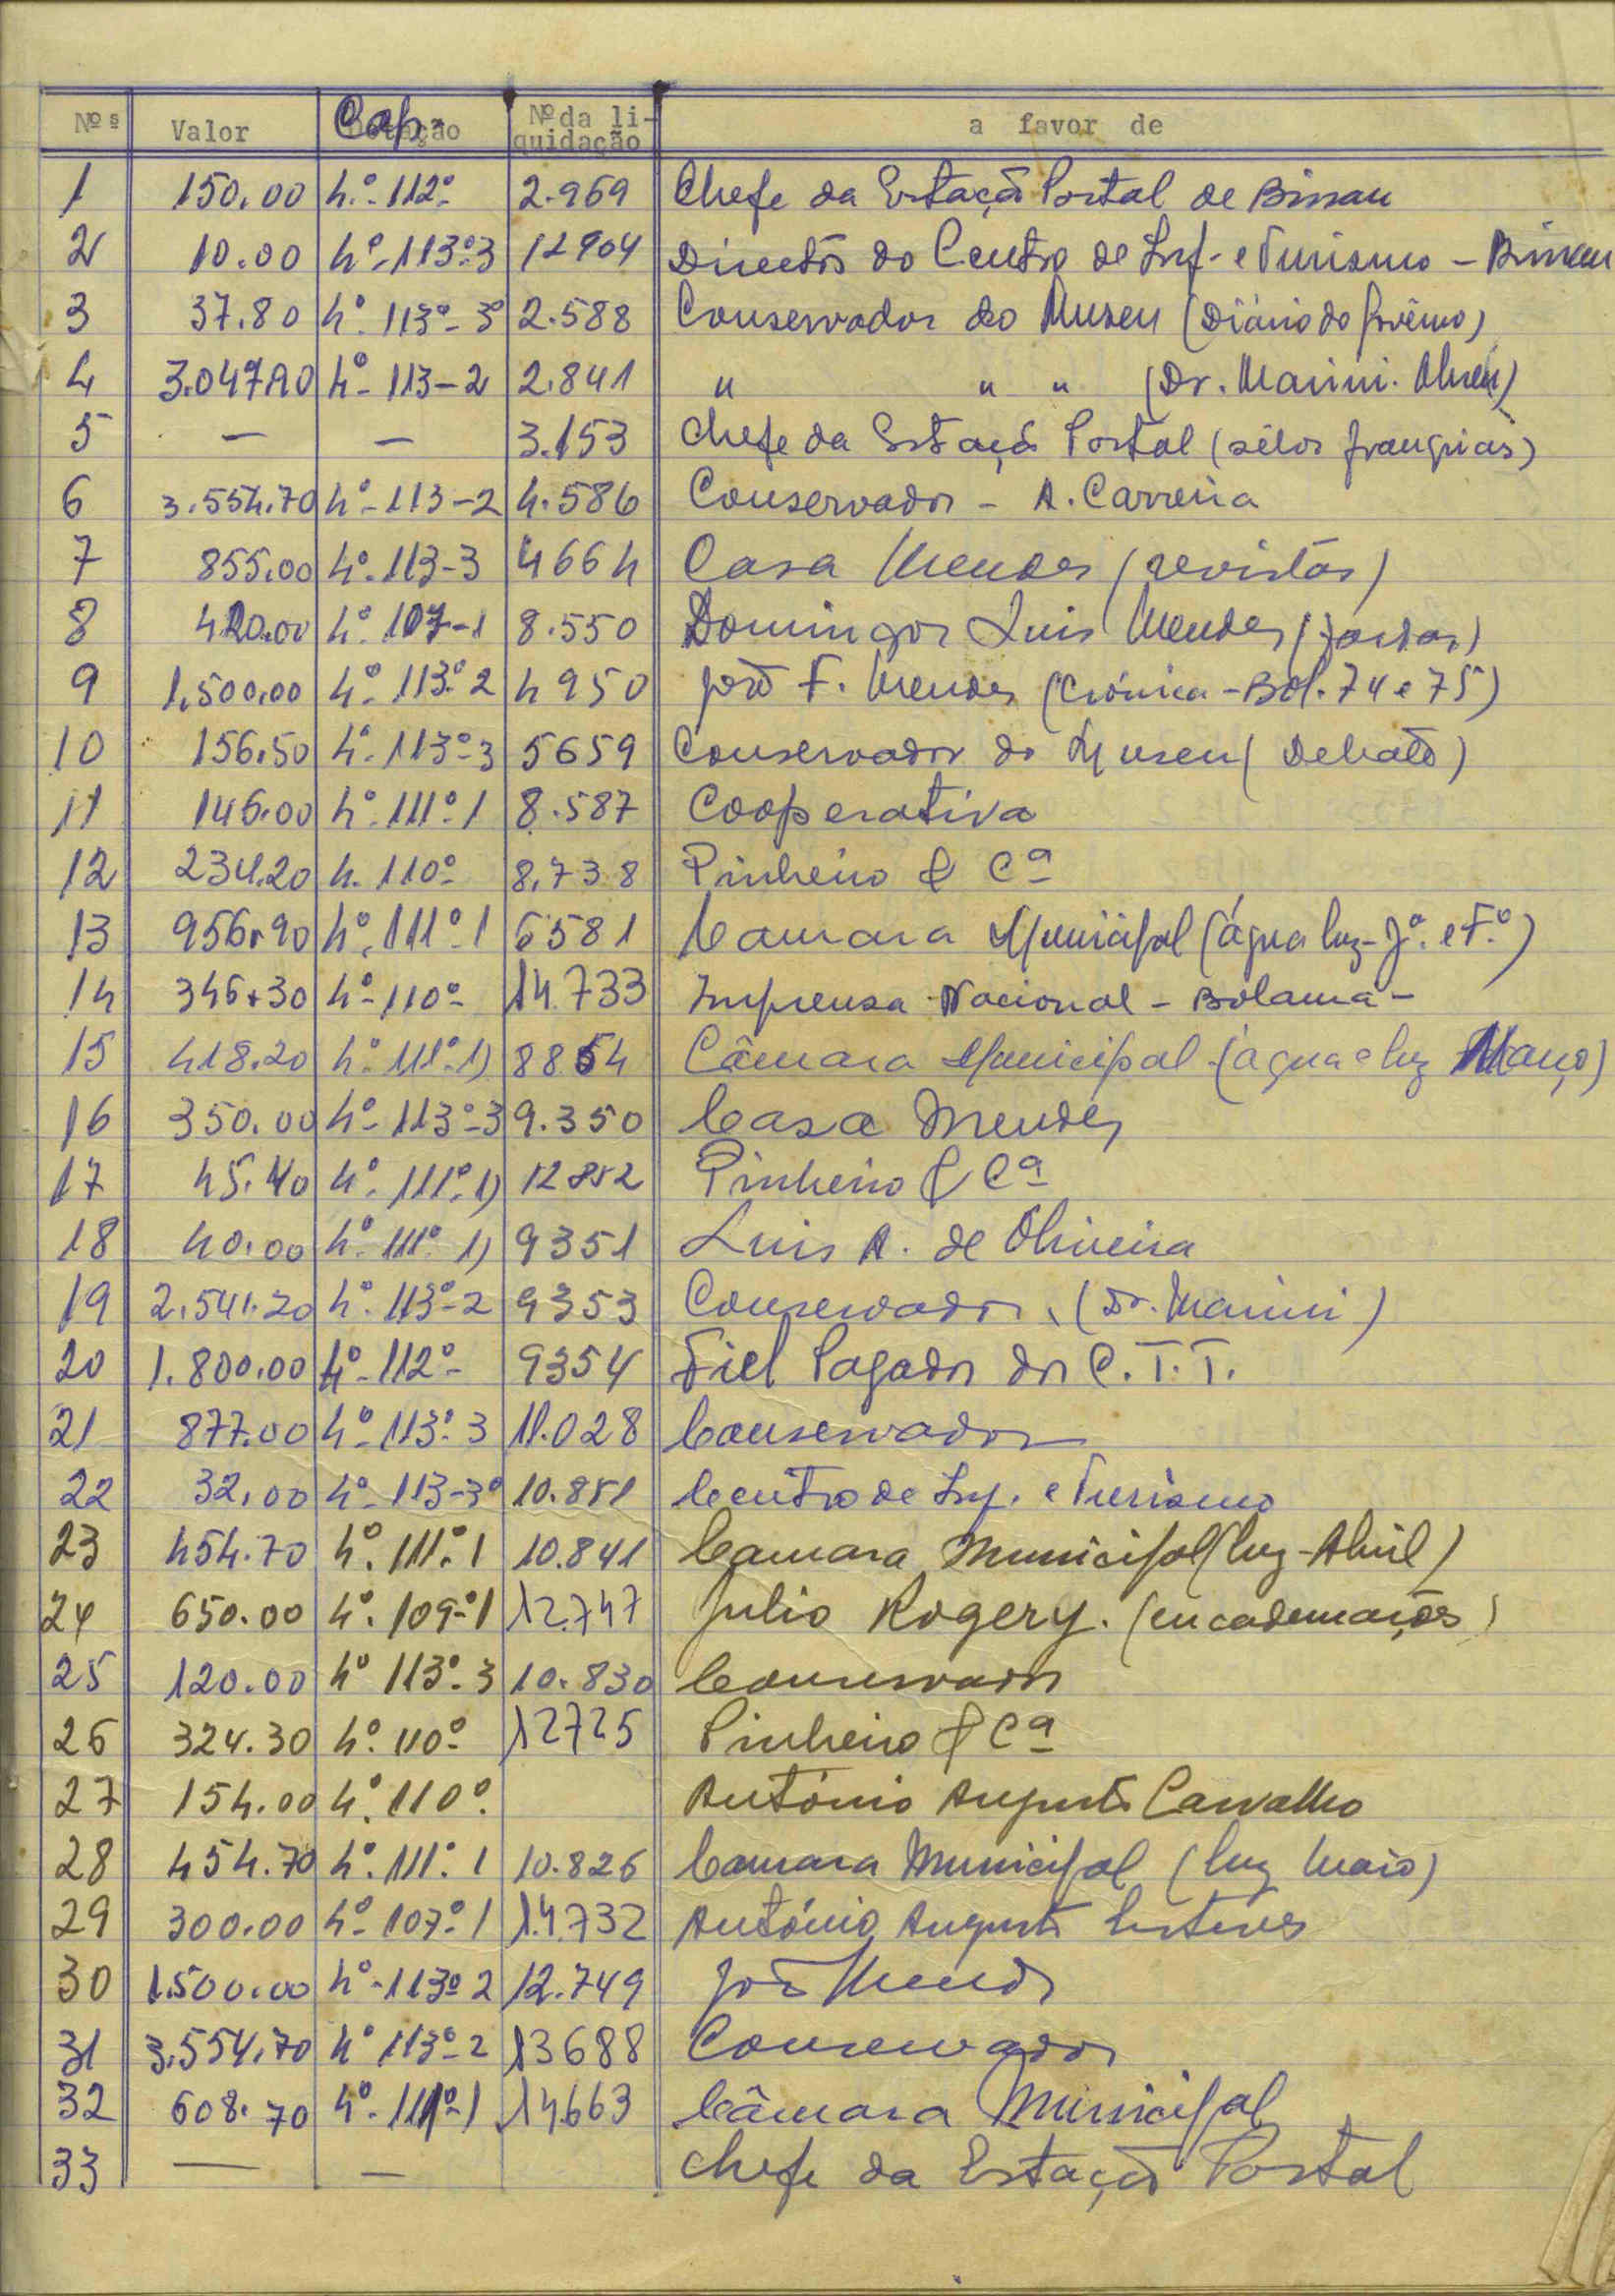 Nºs Valor Cap. Nº da li-quidação a favor de
1 150.00 4.º 112º 2.969 Chefe da Estação Postal de Bissau
2 10.00 4º-113º-3 12904 Director do Centro de Inf. e Turismo - Bissau
3 37.80 4º-113º-3º 2.588 Conservador do Museu (Diário do Govêrno)
4 4º-113-2 2.841 " " " (Dr. Marini. Abreu)
5 — — 3.153 Chefe da Estação Postal (sêlos franquias)
6 3.554.70 4º-113-2 4.586 Conservador - A. Carreira
7 855.00 4º.113-3 4664 Casa Mendes (revistas)
8 420.00 4º.107-1 8.550 Domingos Luis Mendes
9 1.500.00 4º.113º.2 4950 João F. Mendes (Crónica - Bol. 74 e 75)
10 156.50 4º.113º-3 5659 Conservador do Museu (Debato)
11 146.00 4º.111º.1 8.587 Cooperativa
12 234.20 4. 110º 8.738 Pinheiro & Cª
13 956.90 4º.111º.1 6581 Camara Municipal (água luz - Jº. e Fº.)
14 346.30 4º-110º 14.733 Imprensa Nacional - Bolama -
15 418.20 4º.111º.1) 8854 Câmara Municipal (água e luz Março)
16 350.00 4º-113º-3 9.350 Casa Mendes
17 45.40 4º.111º.1) 12852 Pinheiro & Cª
18 40.00 4º.111º.1) 9351 Luis A. de Oliveira
19 2.541.20 4º.113º-2 9353 Conservador. (Dr. Marini)
20 1.800.00 4º-112º- 9354 Fiel Pagador dos C.T.T.
21 877.00 4º-113º.3 11.028 Conservador
22 32.00 4º-113-3º 10.851 Centro de Inf. e Turismo
23 454.70 4º.111º.1 10.841 Camara Municipal (luz - Abril)
24 650.00 4º.109º-1 12.747 Julio Rogery. (encadernações)
25 120.00 4º 113º.3 10.830 Conservador
26 324.30 4º.110º 12725 Pinheiro & Cª
27 154.00 4º.110º. António Augusto Carvalho
28 454.70 4º.111º.1 10.826 Camara Municipal (luz Maio)
29 300.00 4º-107º.1 14.732 António Augusto Esteves
30 1.500.00 4º-113º 2 12.749 João Mendes
31 3.554.70 4º 113º-2 13688 Conservador
32 608.70 4º.111º-1 14663 Câmara Municipal
33 — — Chefe da Estação Postal